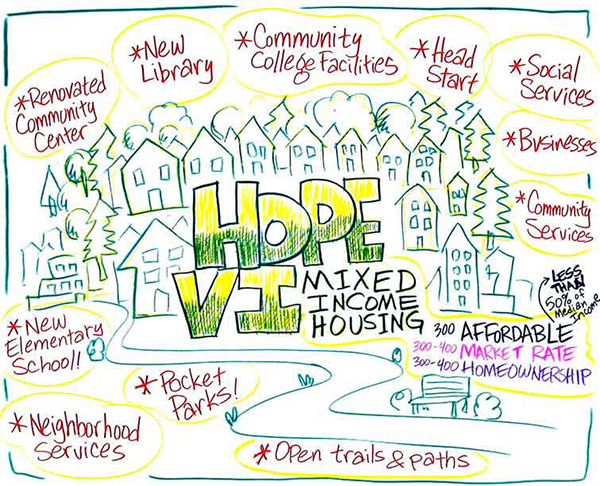 *New
Library
*Community
College Facilities
*Head
Start
*Social
Services
*Renovated
Community
Center
*Businesses
*Community
Services
HOPE
VI
MIXED
INCOME
HOUSING
LESS
THAN
50% of
Median
Income
300 AFFORDABLE
300-400 MARKET RATE
300-400 HOMEOWNERSHIP
*New
Elementary
School!!
*Pocket
Parks!
*Neighborhood
Services
*Open trails & paths